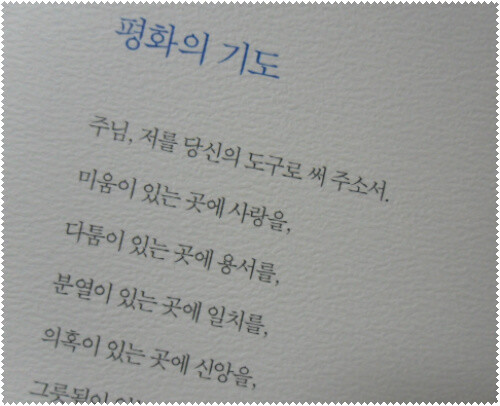 평화의 기도
주님, 저를 당신의 도구로 써 주소서.
미움이 있는 곳에 사랑을,
다툼이 있는 곳에 용서를,
분열이 있는 곳에 일치를,
의혹이 있는 곳에 신앙을,
그릇됨이